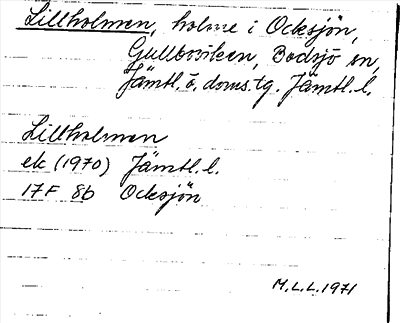 Lillholmen, holme i Ocksjön,
Gullboviken, Bodsjö sn,
Jämtl. ö. doms.tg. Jämtl. l.
Lillholmen
ek (1970) Jämtl. l.
17F 8b Ocksjön
M.L.L. 1971